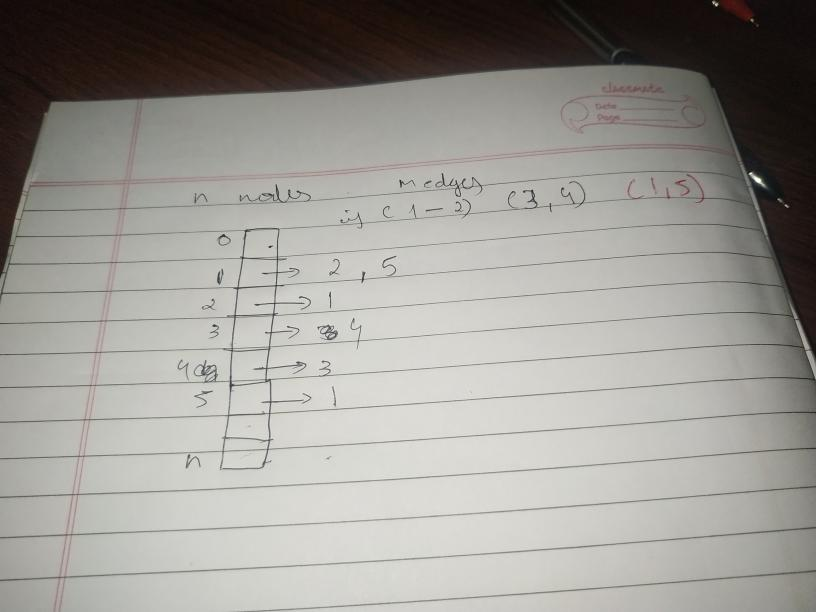 classmate
Date
Page
n nodes m edges
if (1-2) (3,4) (1,5)
0
1 → 2, 5
2 → 1
3 → 4
4 → 3
5 → 1
n